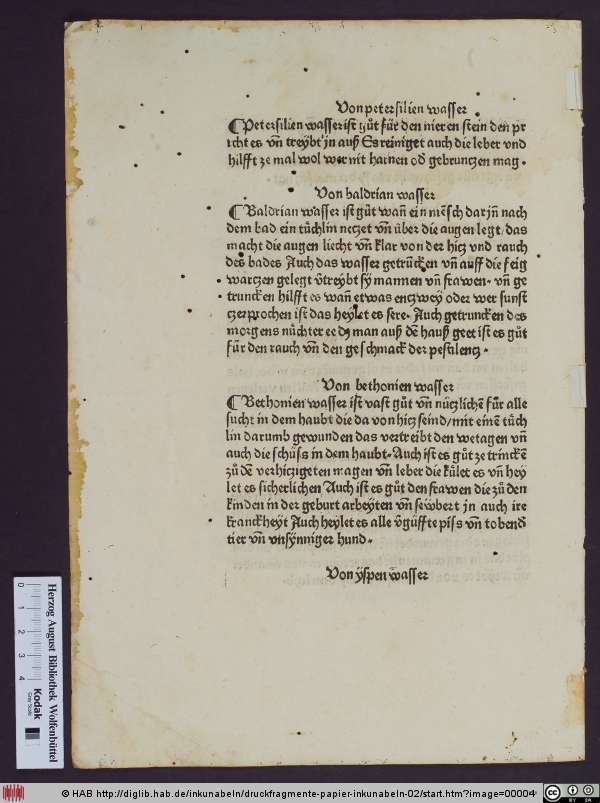 Von petersilien wasser
¶ Petersilien wasser ist gůt für den nieren stein den pr
icht es vñ treybt jn auß Es reiniget auch die leber vnd
hilfft ze mal wol wer nit harnen od gebrunczen mag.
Von baldrian wasser
¶ Baldrian wasser ist gůt wañ ein mẽsch darjñ nach
dem bad ein tůchlin neczet vñ über die augen legt/das
macht die augen liecht vñ klar von der hicz vnd rauch
des bades Auch das wasser getrũcken vñ auff die feig
warczen gelegt v̈treybt sy mannen vñ frawen. vñ ge
truncken hilfft es wañ etwas enczwey oder wer sunst
czerprochen ist das heylet es sere. Auch getruncken des
morgens nůchter ee dz man auß dẽ hauß geet ist es gůt
für den rauch vñ den geschmack der pestilencz.
Von bethonien wasser
¶ Bethonien wasser ist vast gůt vñ nüczlichẽ für alle
sucht in dem haubt die da von hicz seind/mit einẽ tůch
lin darumb gewunden das vertreibt den wetagen vñ
auch die schüss in dem haubt. Auch ist es gůt ze trinckẽ
zů dẽ verhiczigeten magen vñ leber die kůlet es vñ hey
let es sicherlichen Auch ist es gůt den frawen die zů den
kinden in der geburt arbeyten vñ sewbert jn auch ire
kranckheyt Auch heylet es alle v̈güffte piss vñ tobend
tier vñ vnsynniger hund.
Von yspen wasser
Herzog August Bibliothek Wolfenbüttel
Kodak
Gray Scale
0 1 2 3 4
© HAB http://diglib.hab.de/inkunabeln/druckfragmente-papier-inkunabeln-02/start.htm?image=00004
cc BY SA